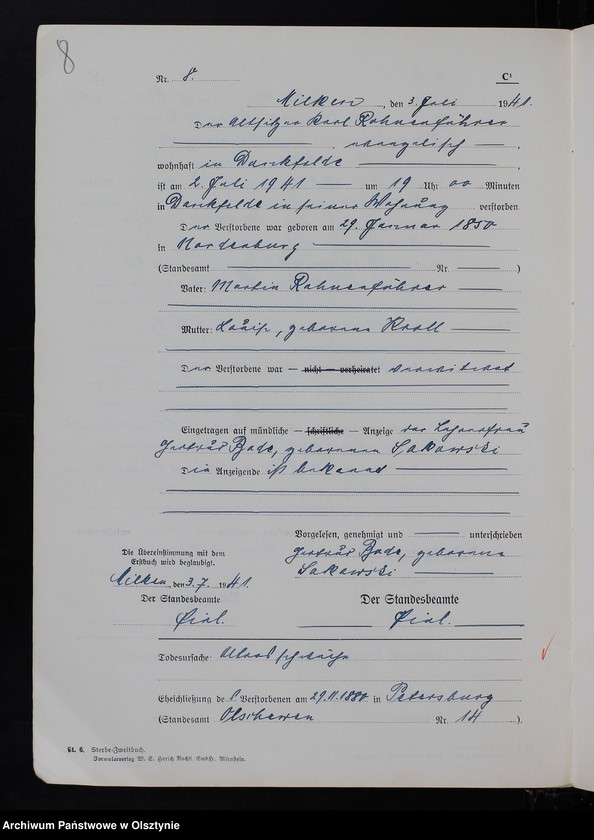 8
Nr. 8. C¹
Milken, den 3. Juli 1941.
Der Altsitzer Karl Rahnenführer
, evangelisch,
wohnhaft in Dankfelde,
ist am 2. Juli 1941 um 19 Uhr 00 Minuten
in Dankfelde in seiner Wohnung verstorben.
Der Verstorbene war geboren am 29. Januar 1850
in Nordenburg
(Standesamt Nr. )
Vater: Martin Rahnenführer
Mutter: Louise, geborene Kroll
Der Verstorbene war — nicht — verheiratet verwitwet
Eingetragen auf mündliche — schriftliche — Anzeige der Lehrerfrau
Gertrud Bode, geborenen Sakowski
Die Anzeigende ist bekannt
Vorgelesen, genehmigt und unterschrieben
Gertrud Bode, geborene
Sakowski
Die Übereinstimmung mit dem
Erstbuch wird beglaubigt.
Milken, den 3.7. 1941.
Der Standesbeamte
Der Standesbeamte
Todesursache: Altersschwäche
Eheschließung de s Verstorbenen am 29.11.1880 in Petersburg
(Standesamt Olschewen Nr. 14 ).
Kt. 6. Sterbe-Zweitbuch.
Formularverlag W. E. Harich Nachfl. GmbH. Allenstein.
Archiwum Państwowe w Olsztynie